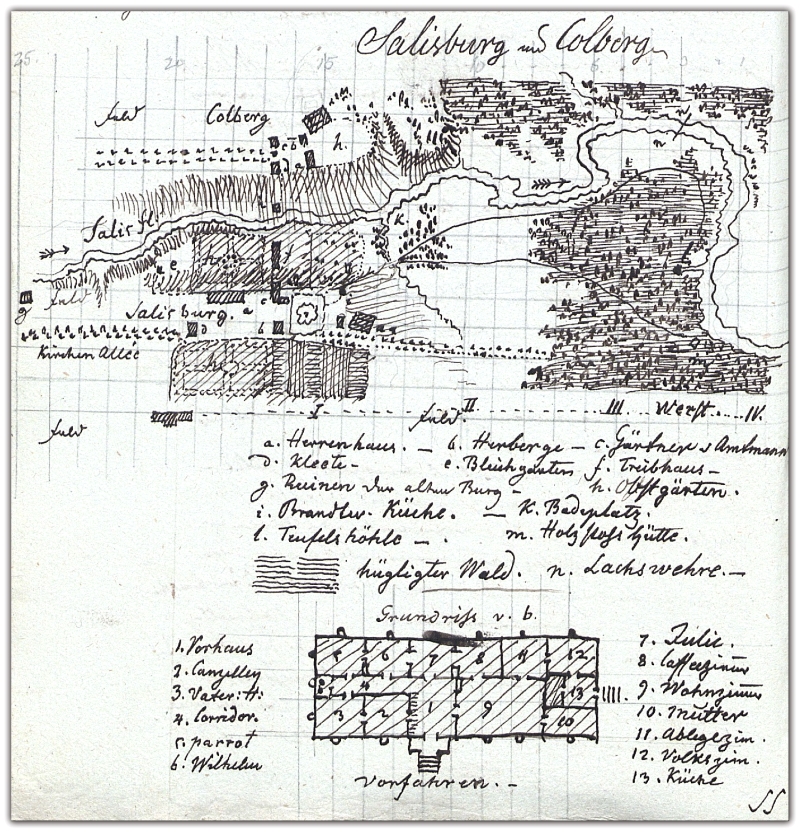 Salisburg und Colberg
25. 20 15 10 5 3 2 1
feld
Colberg
h.
n
Salis fl.
K.
e
h
g
feld
Salisburg.
a
c
d
b
Kirchen Allee
m
h.
I II III Werst IV.
feld
feld.
a. Herrenhaus. — b. Herberge — c. Gärtner u Amtmann
d. Kleete — e. Bleichgarten f. Treibhaus —
g. Ruinen der alten Burg — h. Obstgärten.
i. Brandtw. Küche. — K. Badeplatz.
l. Teufelshöhle —. m. Holzflosshütte.
hügligter Wald. n. Lachswehre. —
Grundriss v. b.
1. Vorhaus
2. Canzelley
3. Vater:
4. Corridor.
5. parrot
6. Wilhelm
5 6 7 8 11 12
4 13
3 2 1 9 10
7. Julie.
8. Caffezimer
9. Wohnzimer
10. Mutter
11. Ablegezim.
12. Volkszim.
13. Küche
Vorfahren. —
SS